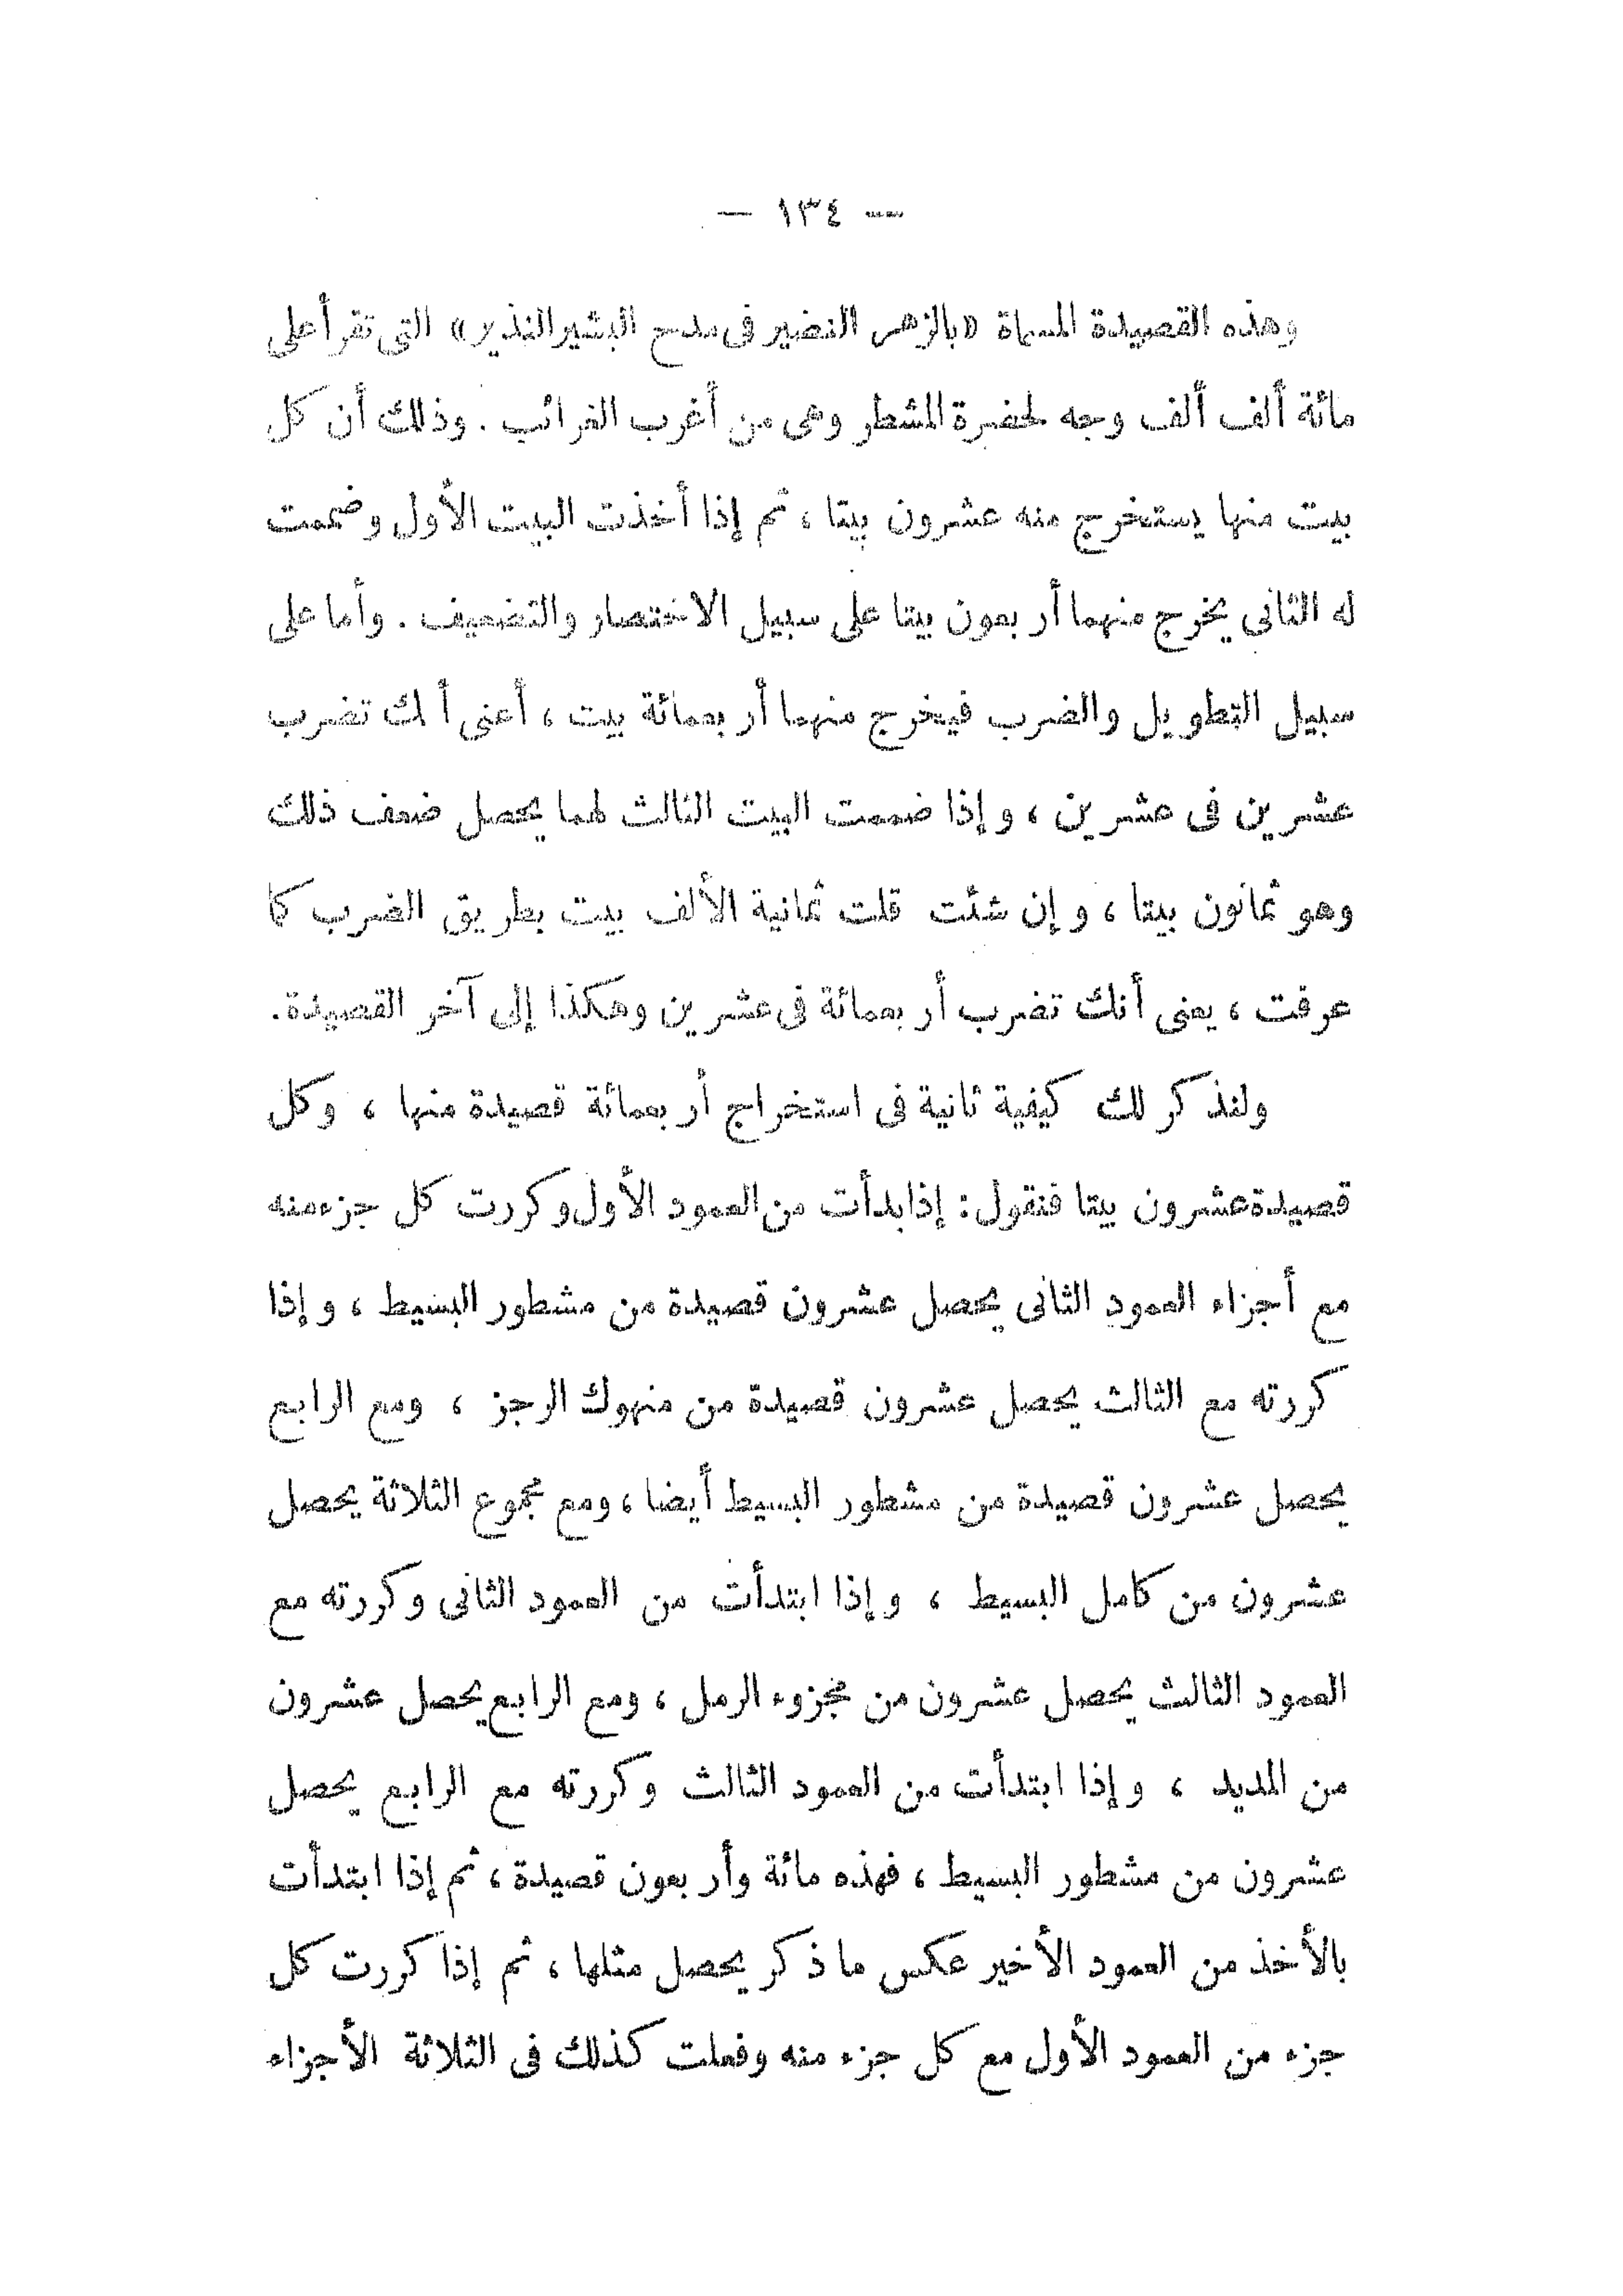 — ١٣٤ —
وهذه القصيدة المسماة «بالزهر النضير فى مدح البشير النذير» التى تقرأ على
مائة ألف ألف وجه لحضرة المشطر وهى من أغرب الغرائب . وذلك أن كل
بيت منها يستخرج منه عشرون بيتا ، ثم إذا أخذت البيت الأول وضممت
له الثانى يخرج منهما أربعون بيتا على سبيل الاختصار والتضعيف . وأما على
سبيل التطويل والضرب فيخرج منهما أربعمائة بيت ، أعنى أ لك تضرب
عشرين فى عشرين ، وإذا ضممت البيت الثالث لهما يحصل ضعف ذلك
وهو ثمانون بيتا ، وإن شئت قلت ثمانية الألف بيت بطريق الضرب كما
عرفت ، يعنى أنك تضرب أربعمائة فى عشرين وهكذا إلى آخر القصيدة .
ولنذكر لك كيفية ثانية فى استخراج أربعمائة قصيدة منها ، وكل
قصيدة عشرون بيتا فنقول : إذا بدأت من العمود الأول وكررت كل جزء منه
مع أجزاء العمود الثانى يحصل عشرون قصيدة من مشطور البسيط ، وإذا
كررته مع الثالث يحصل عشرون قصيدة من منهوك الرجز ، ومع الرابع
يحصل عشرون قصيدة من مشطور البسيط أيضا ، ومع مجموع الثلاثة يحصل
عشرون من كامل البسيط ، وإذا ابتدأت من العمود الثانى وكررته مع
العمود الثالث يحصل عشرون من مجزوء الرمل ، ومع الرابع يحصل عشرون
من المديد ، وإذا ابتدأت من العمود الثالث وكررته مع الرابع يحصل
عشرون من مشطور البسيط ، فهذه مائة وأربعون قصيدة ، ثم إذا ابتدأت
بالأخذ من العمود الأخير عكس ما ذكر يحصل مثلها ، ثم إذا كررت كل
جزء من العمود الأول مع كل جزء منه وفعلت كذلك فى الثلاثة الأجزاء